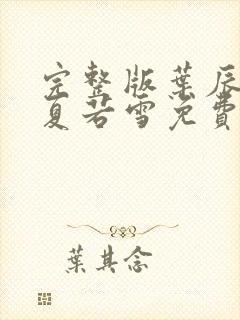 完整版葉辰
夏若雪免費
葉其念